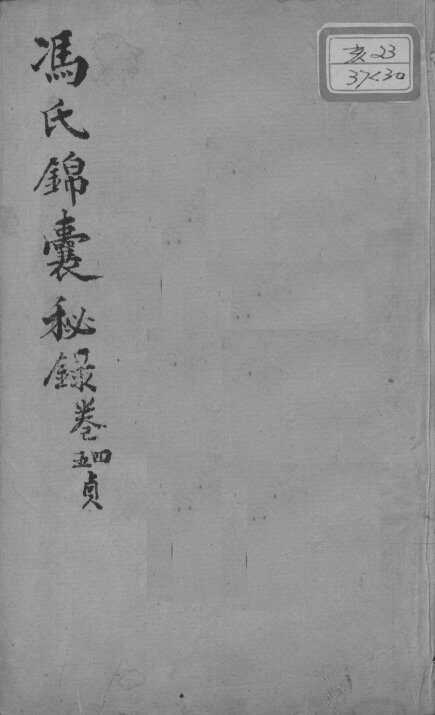 馮氏錦囊秘録卷四五貞
亥23
37<30